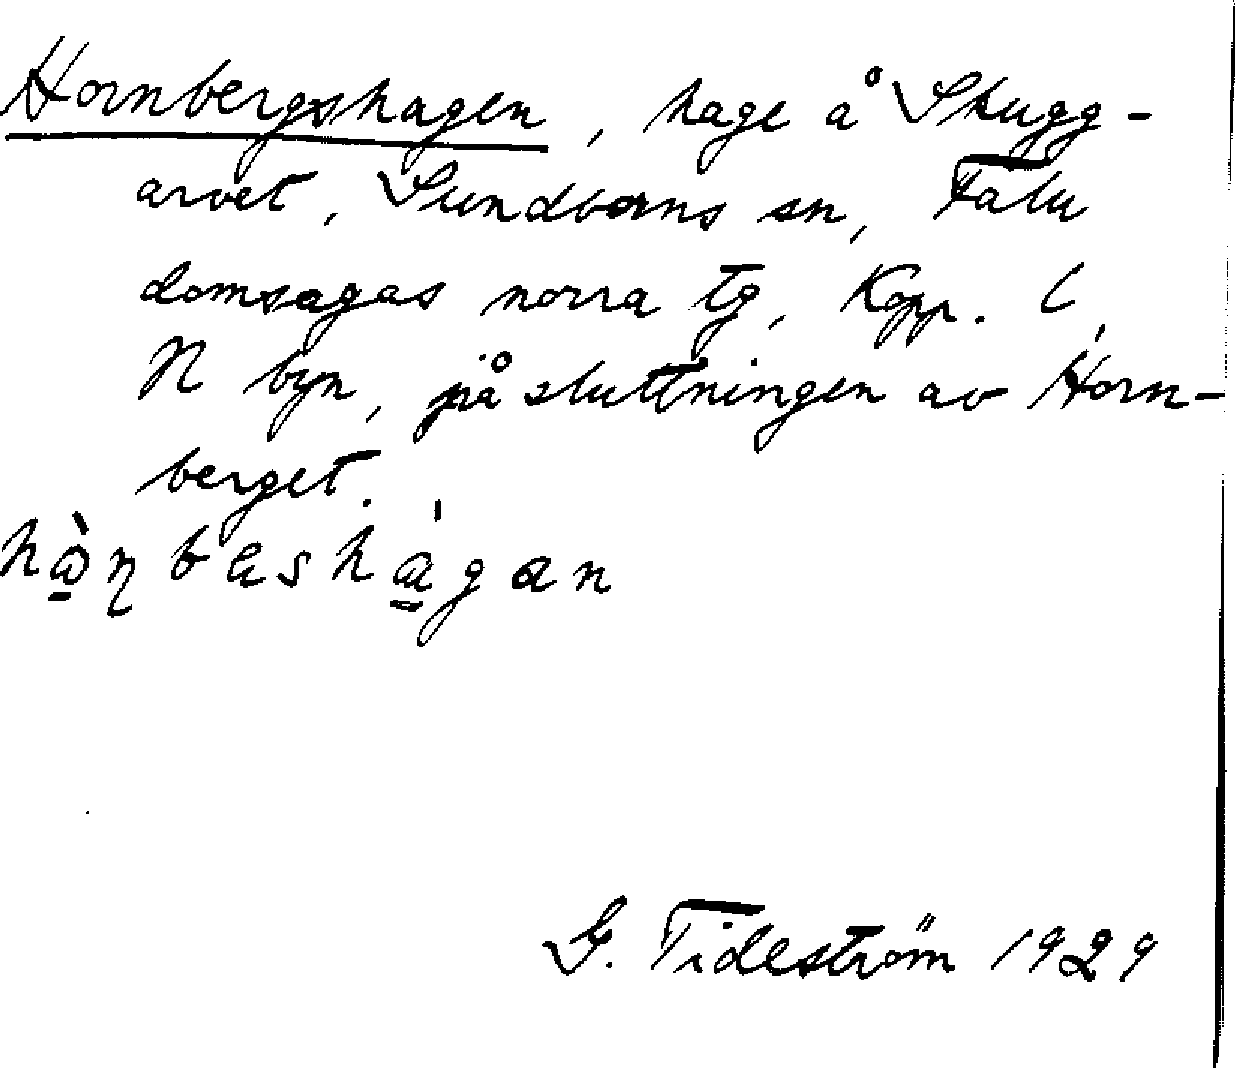 Hornbergshagen, hage å Skugg-
arvet, Sundborns sn, Falu
domsagas norra tg, Kopp. l,
N byn, på sluttningen av Horn-
berget.
hànbashágan
G. Tideström 1929